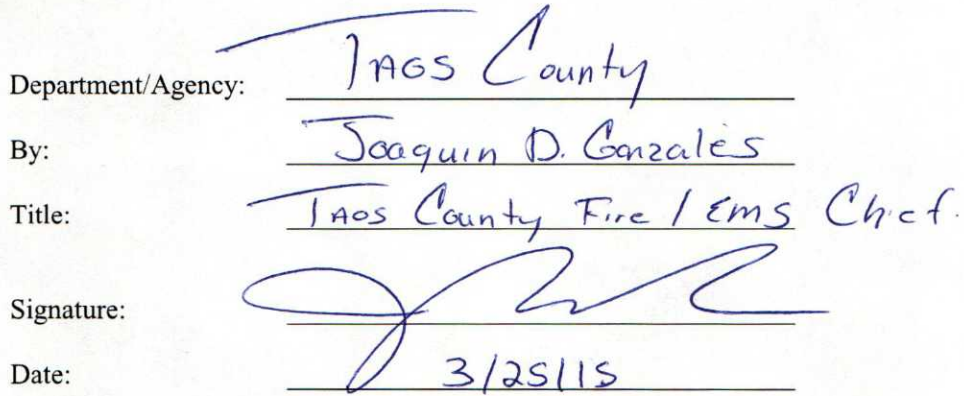 Department/Agency: TAOS County
By: Joaquin D. Gonzales
Title: TAOS County Fire / EMS Chief.
Signature:
Date: 3/25/15